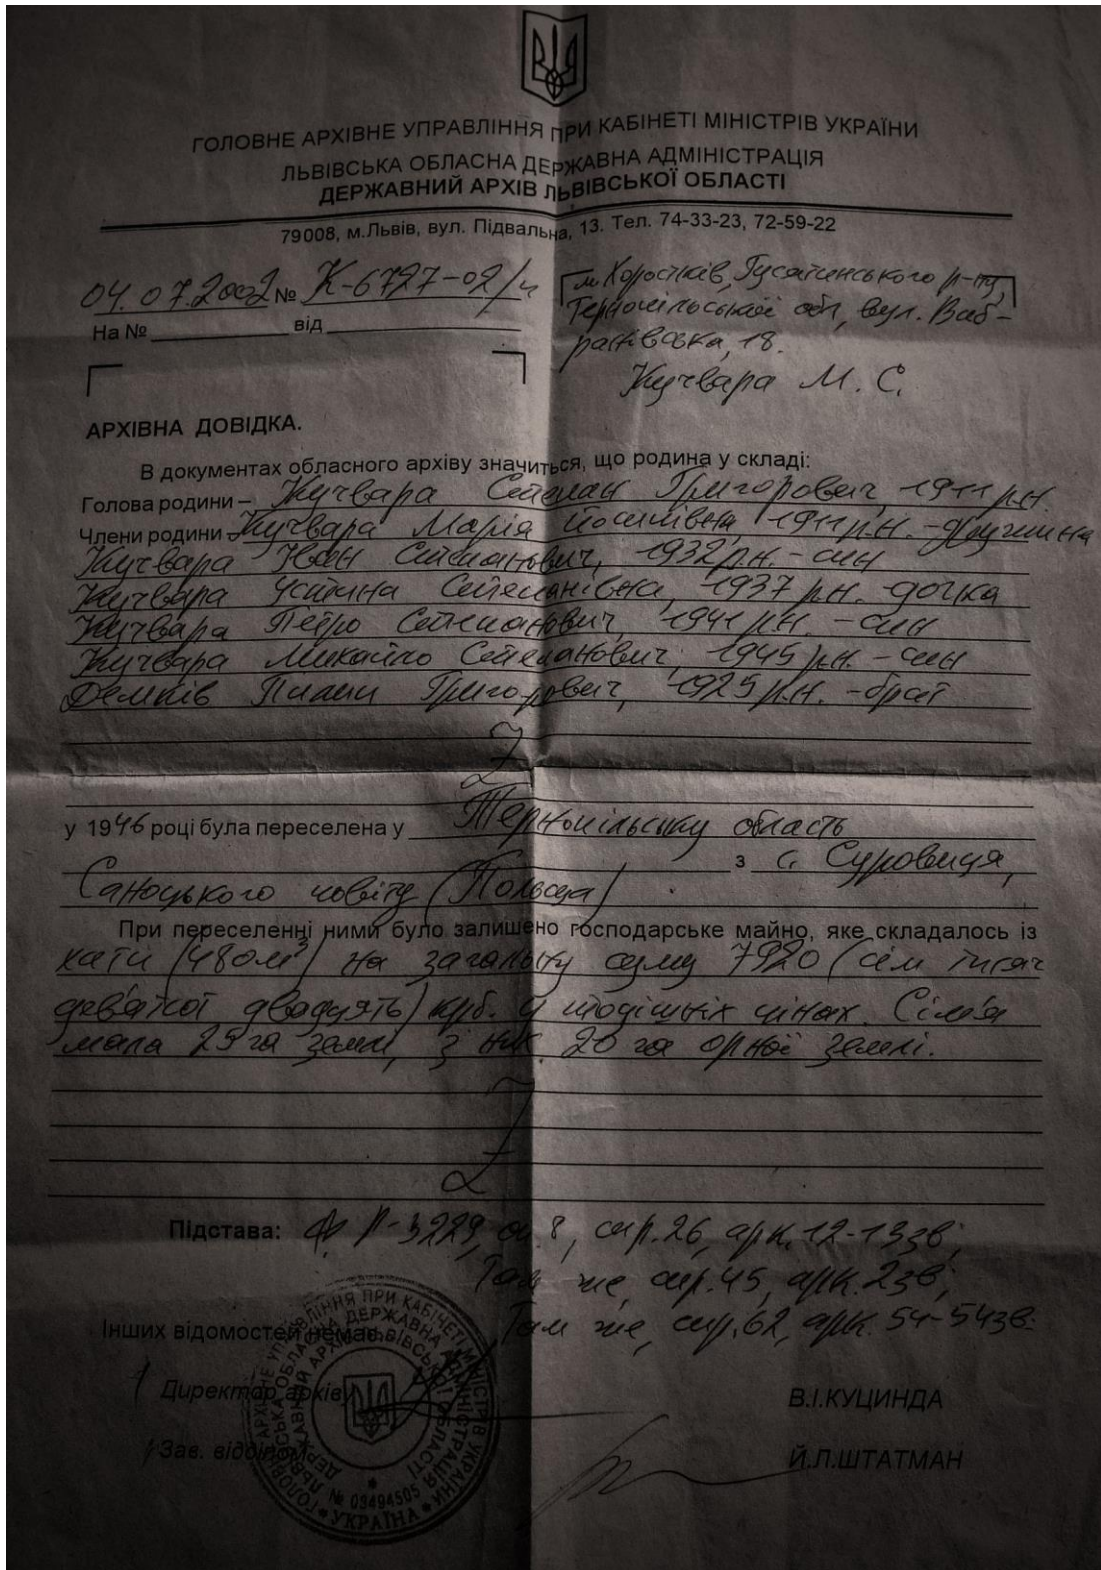 ГОЛОВНЕ АРХІВНЕ УПРАВЛІННЯ ПРИ КАБІНЕТІ МІНІСТРІВ УКРАЇНИ
ЛЬВІВСЬКА ОБЛАСНА ДЕРЖАВНА АДМІНІСТРАЦІЯ
ДЕРЖАВНИЙ АРХІВ ЛЬВІВСЬКОЇ ОБЛАСТІ
79008, м.Львів, вул. Підвальна, 13. Тел. 74-33-23, 72-59-22
04.07.2002 № К-6727-02/
На № від
м. Хоростків, Гусятинського р-ну,
Тернопільської обл, вул.
18.
Кучвара М. С.
АРХІВНА ДОВІДКА.
В документах обласного архіву значиться, що родина у складі:
Голова родини – Кучвара Степан Григорович, 1911 р.н.
Члени родини - Кучвара Марія Йосипівна, 1911 р.н. - дружина
Кучвара Іван Степанович, 1932 р.н. - син
Кучвара Устина Степанівна, 1937 р.н. - дочка
Кучвара Петро Степанович, 1941 р.н. - син
Кучвара Михайло Степанович, 1945 р.н. - син
Демків Григорович, 1925 р.н. - брат
у 1946 році була переселена у Тернопільську область
з с. Суровиця,
Саноцького повіту (Польща)
При переселенні ними було залишено господарське майно, яке складалось із
хати (480м³) на загальну суму 7920 (сім тисяч
дев'ятсот двадцять) крб. у тодішніх цінах. Сім'я
мала 25 га землі, з них 20 га орної землі.
Підстава: ф. Р-3229, оп. 8, спр. 26, арк. 12-13зв;
Там же, спр. 45, арк. 2зв;
Інших відомостей немає. Там же, спр. 62, арк. 54-54зв.
Директор архіву В.І.КУЦИНДА
Зав. відділом Й.Л.ШТАТМАН
ГОЛОВНЕ АРХІВНЕ УПРАВЛІННЯ ПРИ КАБІНЕТІ МІНІСТРІВ УКРАЇНИ
ЛЬВІВСЬКА ОБЛАСНА ДЕРЖАВНА АДМІНІСТРАЦІЯ
ДЕРЖАВНИЙ АРХІВ ЛЬВІВСЬКОЇ ОБЛАСТІ
№ 03494505
УКРАЇНА